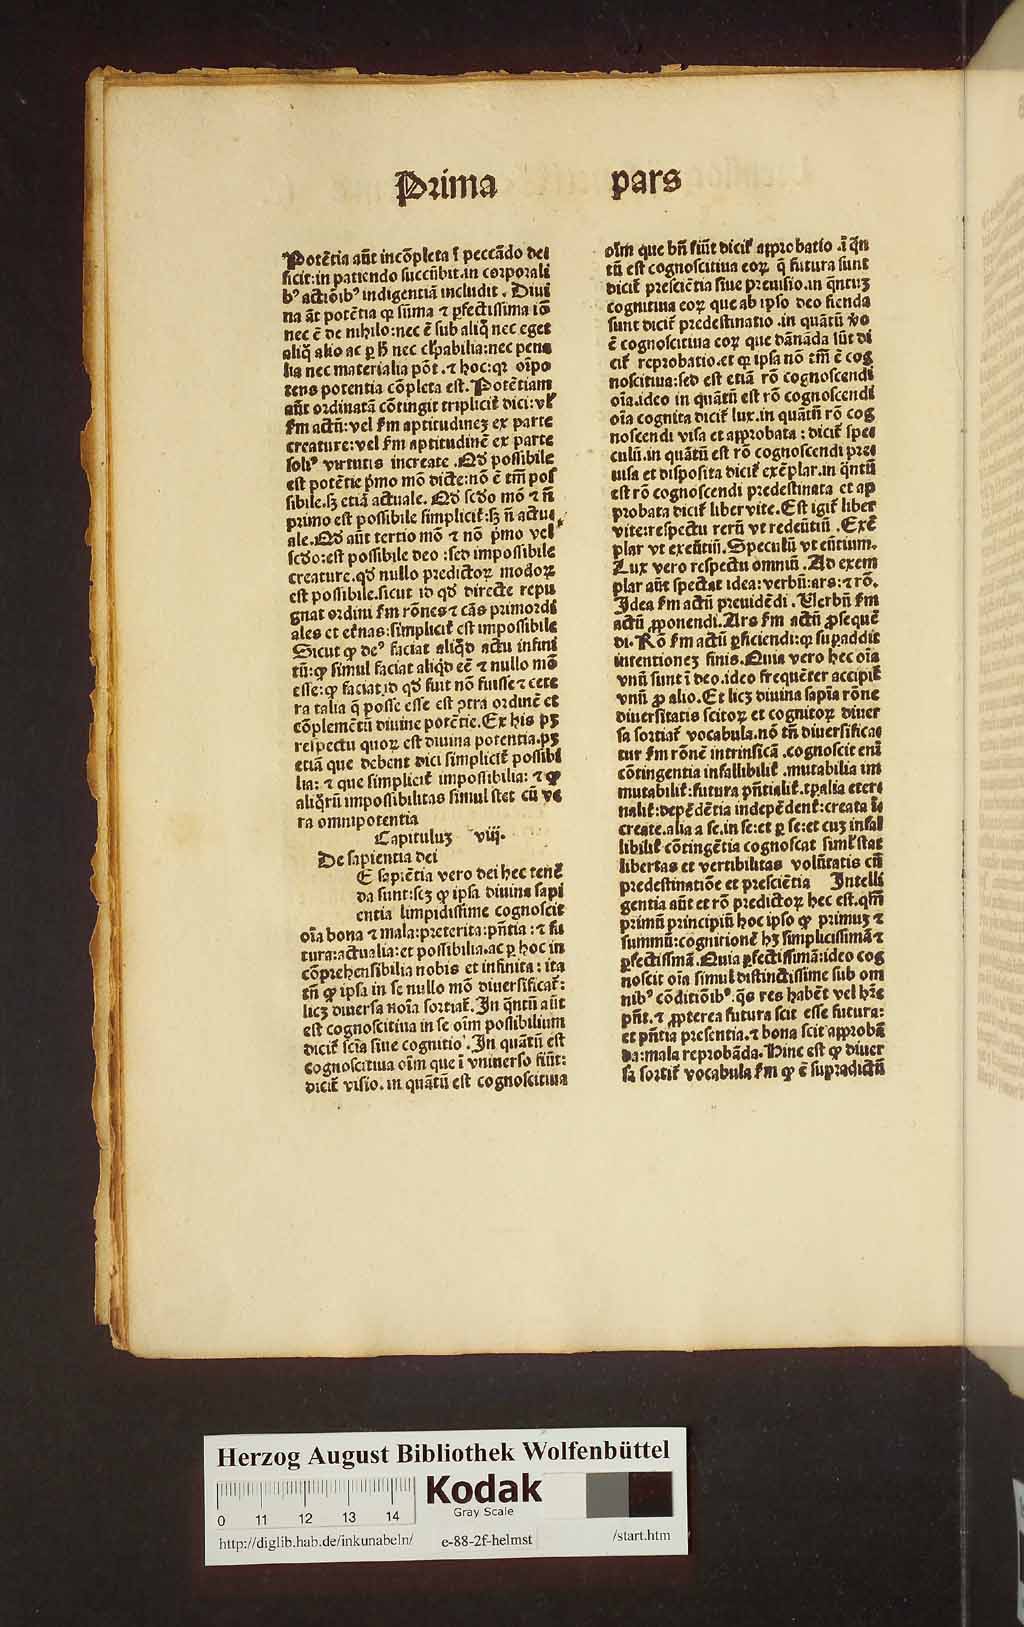 Prima pars
Potẽtia aũt incõpleta ĩ peccãdo dei
ficit:in patiendo succũbit.in corporali
bꝰ actiõibꝰ indigentiã includit. Diui
na ãt potẽtia ꝙ sũma ⁊ ꝑfectissima iõ
nec ẽ de nihilo:nec ẽ sub aliq̃ nec eget
aliq̃ alio ac ꝑ h̃ nec cl̃pabilia:nec pena
lia nec materialia põt.⁊ hoc:qꝛ oĩpo
tens potentia cõpleta est. Potẽtiam
aũt ordinatã cõtingit triplicit̃ dici:vl̃
ẜm actũ:vel ẜm aptitudineꝫ ex parte
creature:vel ẜm aptitudinẽ ex parte
soliꝰ virtutis increate. Qđ possibile
est potẽtie p̃mo mõ dicte:nõ ẽ tm̃ pos
sibile.sꝫ etiã actuale. Qđ scđo mõ ⁊ ñ
primo est possibile simplicit̃:sꝫ ñ actu
ale. Qđ aũt tertio mõ ⁊ nõ p̃mo vel
scđo:est possibile deo:sed impossibile
creature.qđ nullo predictoꝝ modoꝝ
est possibile.sicut id qđ directe repu
gnat ordini ẜm rõnes ⁊ cãs primordi
ales et et̃nas:simplicit̃ est impossibile
Sicut ꝙ deꝰ faciat aliqđ actu infini
tũ:ꝙ simul faciat aliqđ eẽ ⁊ nullo mõ
esse:ꝙ faciat id qđ fuit nõ fuisse ⁊ cete
ra talia q̃ posse esse est ꝯtra ordinẽ et
cõplemẽtũ diuine potẽtie. Ex his pꝫ
respectu quoꝝ est diuina potentia.pꝫ
etiã que debent dici simplicit̃ possibi
lia: ⁊ que simplicit̃ impossibilia: ⁊ ꝙ
aliq̃rũ impossibilitas simul stet cũ ve
ra omnipotentia
Capituluꝫ viij.
De sapientia dei
E sapiẽtia vero dei hec tenẽ
da sunt:scꝫ ꝙ ipsa diuina sapi
entia limpidissime cognoscit
oĩa bona ⁊ mala:preterita:pñtia:⁊ fu
tura:actualia:et possibilia.ac ꝑ hoc in
cõprehensibilia nobis et infinita: ita
tñ ꝙ ipsa in se nullo mõ diuersificat̃:
licꝫ diuersa noĩa sortiat̃. In q̃ntũ aũt
est cognoscitiua in se oĩm possibilium
dicit̃ scĩa siue cognitio. In quãtũ est
cognoscitiua oĩm que ĩ vniuerso fiũt:
dicit̃ visio. in quãtũ est cognoscitiua
oĩm que bñ fiũt dicit̃ approbatio .ĩ q̃n
tũ est cognoscitiua eoꝝ q̃ futura sunt
dicit̃ presciẽtia siue preuisio.in q̃ntuꝫ
cognitiua eoꝝ que ab ipso deo fienda
sunt dicit̃ predestinatio .in quãtũ ṽo
ẽ cognoscitiua eoꝝ que dãnãda sũt di
cit̃ reprobatio.et qꝛ ipsa nõ tm̃ ẽ cog
noscitiua:sed est etiã rõ cognoscendi
oĩa.ideo in quãtũ est rõ cognoscendi
oĩa cognita dicit̃ lux.in quãtũ rõ cog
noscendi visa et approbata : dicit̃ spe
culũ.in quãtũ est rõ cognoscendi pre
uisa et disposita dicit̃ exẽplar.in q̃ntũ
est rõ cognoscendi predestinata et ap
probata dicit̃ liber vite. Est igit̃ liber
vite:respectu rerũ vt redeũtiũ . Exẽ
plar vt exeũtiũ. Speculũ vt eũtium.
Lux vero respectu omniũ . Ad exem
plar aũt spectat idea:verbũ:ars:⁊ rõ.
Idea ẜm actũ preuidẽdi . Verbũ ẜm
actũ ꝓponendi. Ars ẜm actũ ꝓsequẽ
di. Rõ ẜm actũ ꝑficiendi:qꝛ suꝑaddit
intentioneꝫ finis. Quia vero hec oĩa
vnũ sunt ĩ deo.ideo frequẽter accipit̃
vnũ ꝓ alio. Et licꝫ diuina sapĩa rõne
diuersitatis scitoꝝ et cognitoꝝ diuer
sa sortiat̃ vocabula.nõ tñ diuersifica
tur ẜm rõnẽ intrinsicã .cognoscit enĩ
cõtingentia infallibilit̃ .mutabilia im
mutabilit̃:futura pñtialit̃.tꝑalia eter
nalit̃:depẽdẽtia indepẽdent̃:creata ĩ
create.alia a se.in se:et ꝑ se:et cuꝫ infal
libilit̃ cõtingẽtia cognoscat siml̃ stat
libertas et vertibilitas volũtatis cũ
predestinatiõe et presciẽtia Intelli
gentia aũt et rõ predictoꝝ hec est.qm̃
primũ principiũ hoc ipso ꝙ primuꝫ ⁊
summũ:cognitionẽ hꝫ simplicissimã ⁊
ꝑfectissimã. Quia ꝑfectissimã:ideo cog
noscit oĩa simul distinctissime sub om
nibꝰ cõditiõibꝰ.q̃s res habẽt vel hr̃e
pñt.⁊ ꝓpterea futura scit esse futura:
et pñtia presentia.⁊ bona scit approbã
da:mala reprobãda. Hinc est ꝙ diuer
sa sortit̃ vocabula ẜm ꝙ ẽ supradictũ
Herzog August Bibliothek Wolfenbüttel
0 11 12 13 14
Kodak
Gray Scale
http://diglib.hab.de/inkunabeln/ e-88-2f-helmst /start.htm